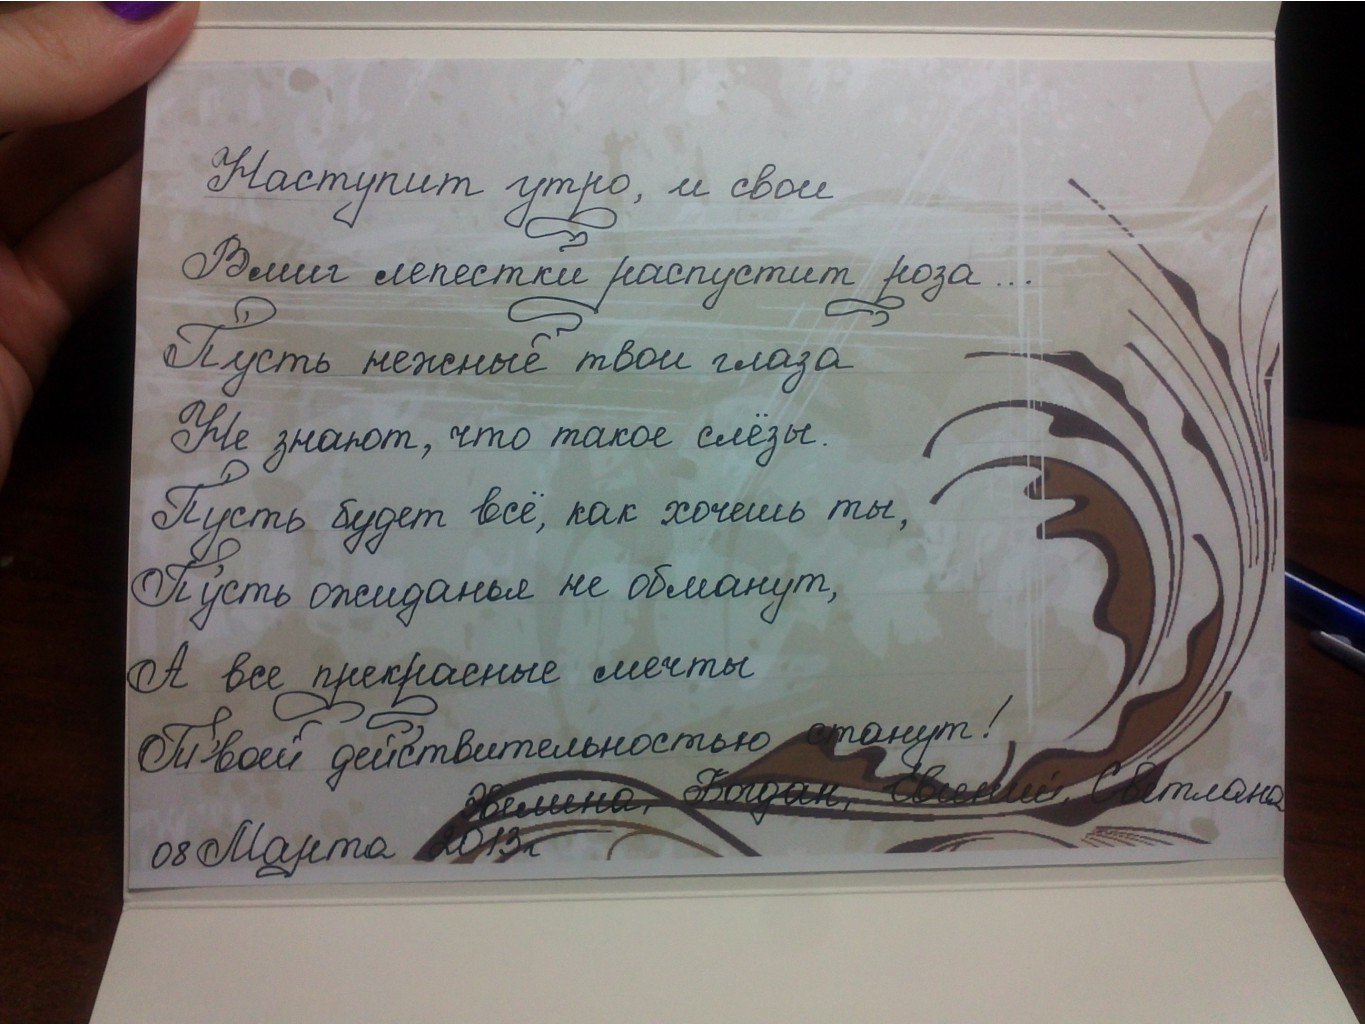 Наступит утро, и свои
Вмиг лепестки распустит роза...
Пусть нежные твои глаза
Не знают, что такое слёзы.
Пусть будет всё, как хочешь ты,
Пусть ожиданья не обманут,
А все прекрасные мечты
Твоей действительностью станут!
Богдан, Евгений, Светлана
08 Марта 2013г